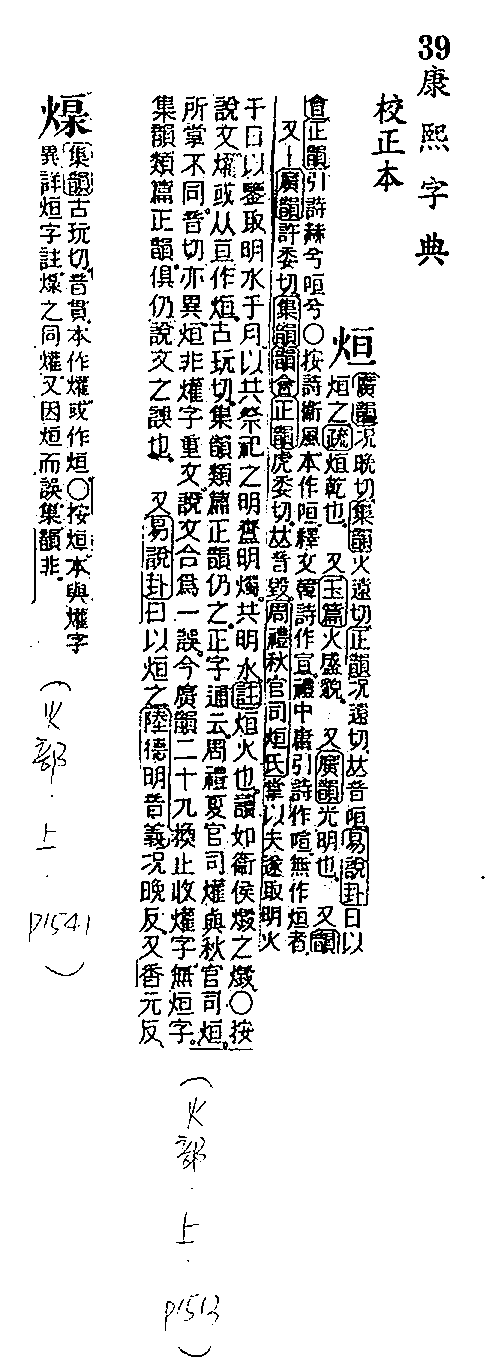 39 康熙字典
校正本
烜
廣韻况晚切集韻火遠切正韻况遠切𠀤音咺易說卦日以
烜之疏烜乾也 又玉篇火盛貌 又廣韻光明也 又韻
會正韻引詩赫兮咺兮〇按詩衞風本作咺釋文韓詩作宣禮中庸引詩作喧無作烜者
又廣韻許委切集韻韻會正韻虎委切𠀤音毀周禮秋官司烜氏掌以夫遂取明火
于日以鑒取明水于月以共祭祀之明齍明燭共明水註烜火也讀如衞侯燬之燬〇按
說文爟或从亘作烜古玩切集韻類篇正韻仍之正字通云周禮夏官司爟與秋官司烜
所掌不同音切亦異烜非爟字重文說文合爲一誤今廣韻二十九換止收爟字無烜字
集韻類篇正韻俱仍說文之誤也 又易說卦日以烜之陸德明音義况晚反又香元反
(火部.上.p1513)
集韻古玩切音貫本作爟或作烜〇按烜本與爟字
異詳烜字註㷄之同爟又因烜而誤集韻非
(火部.上.p1541)